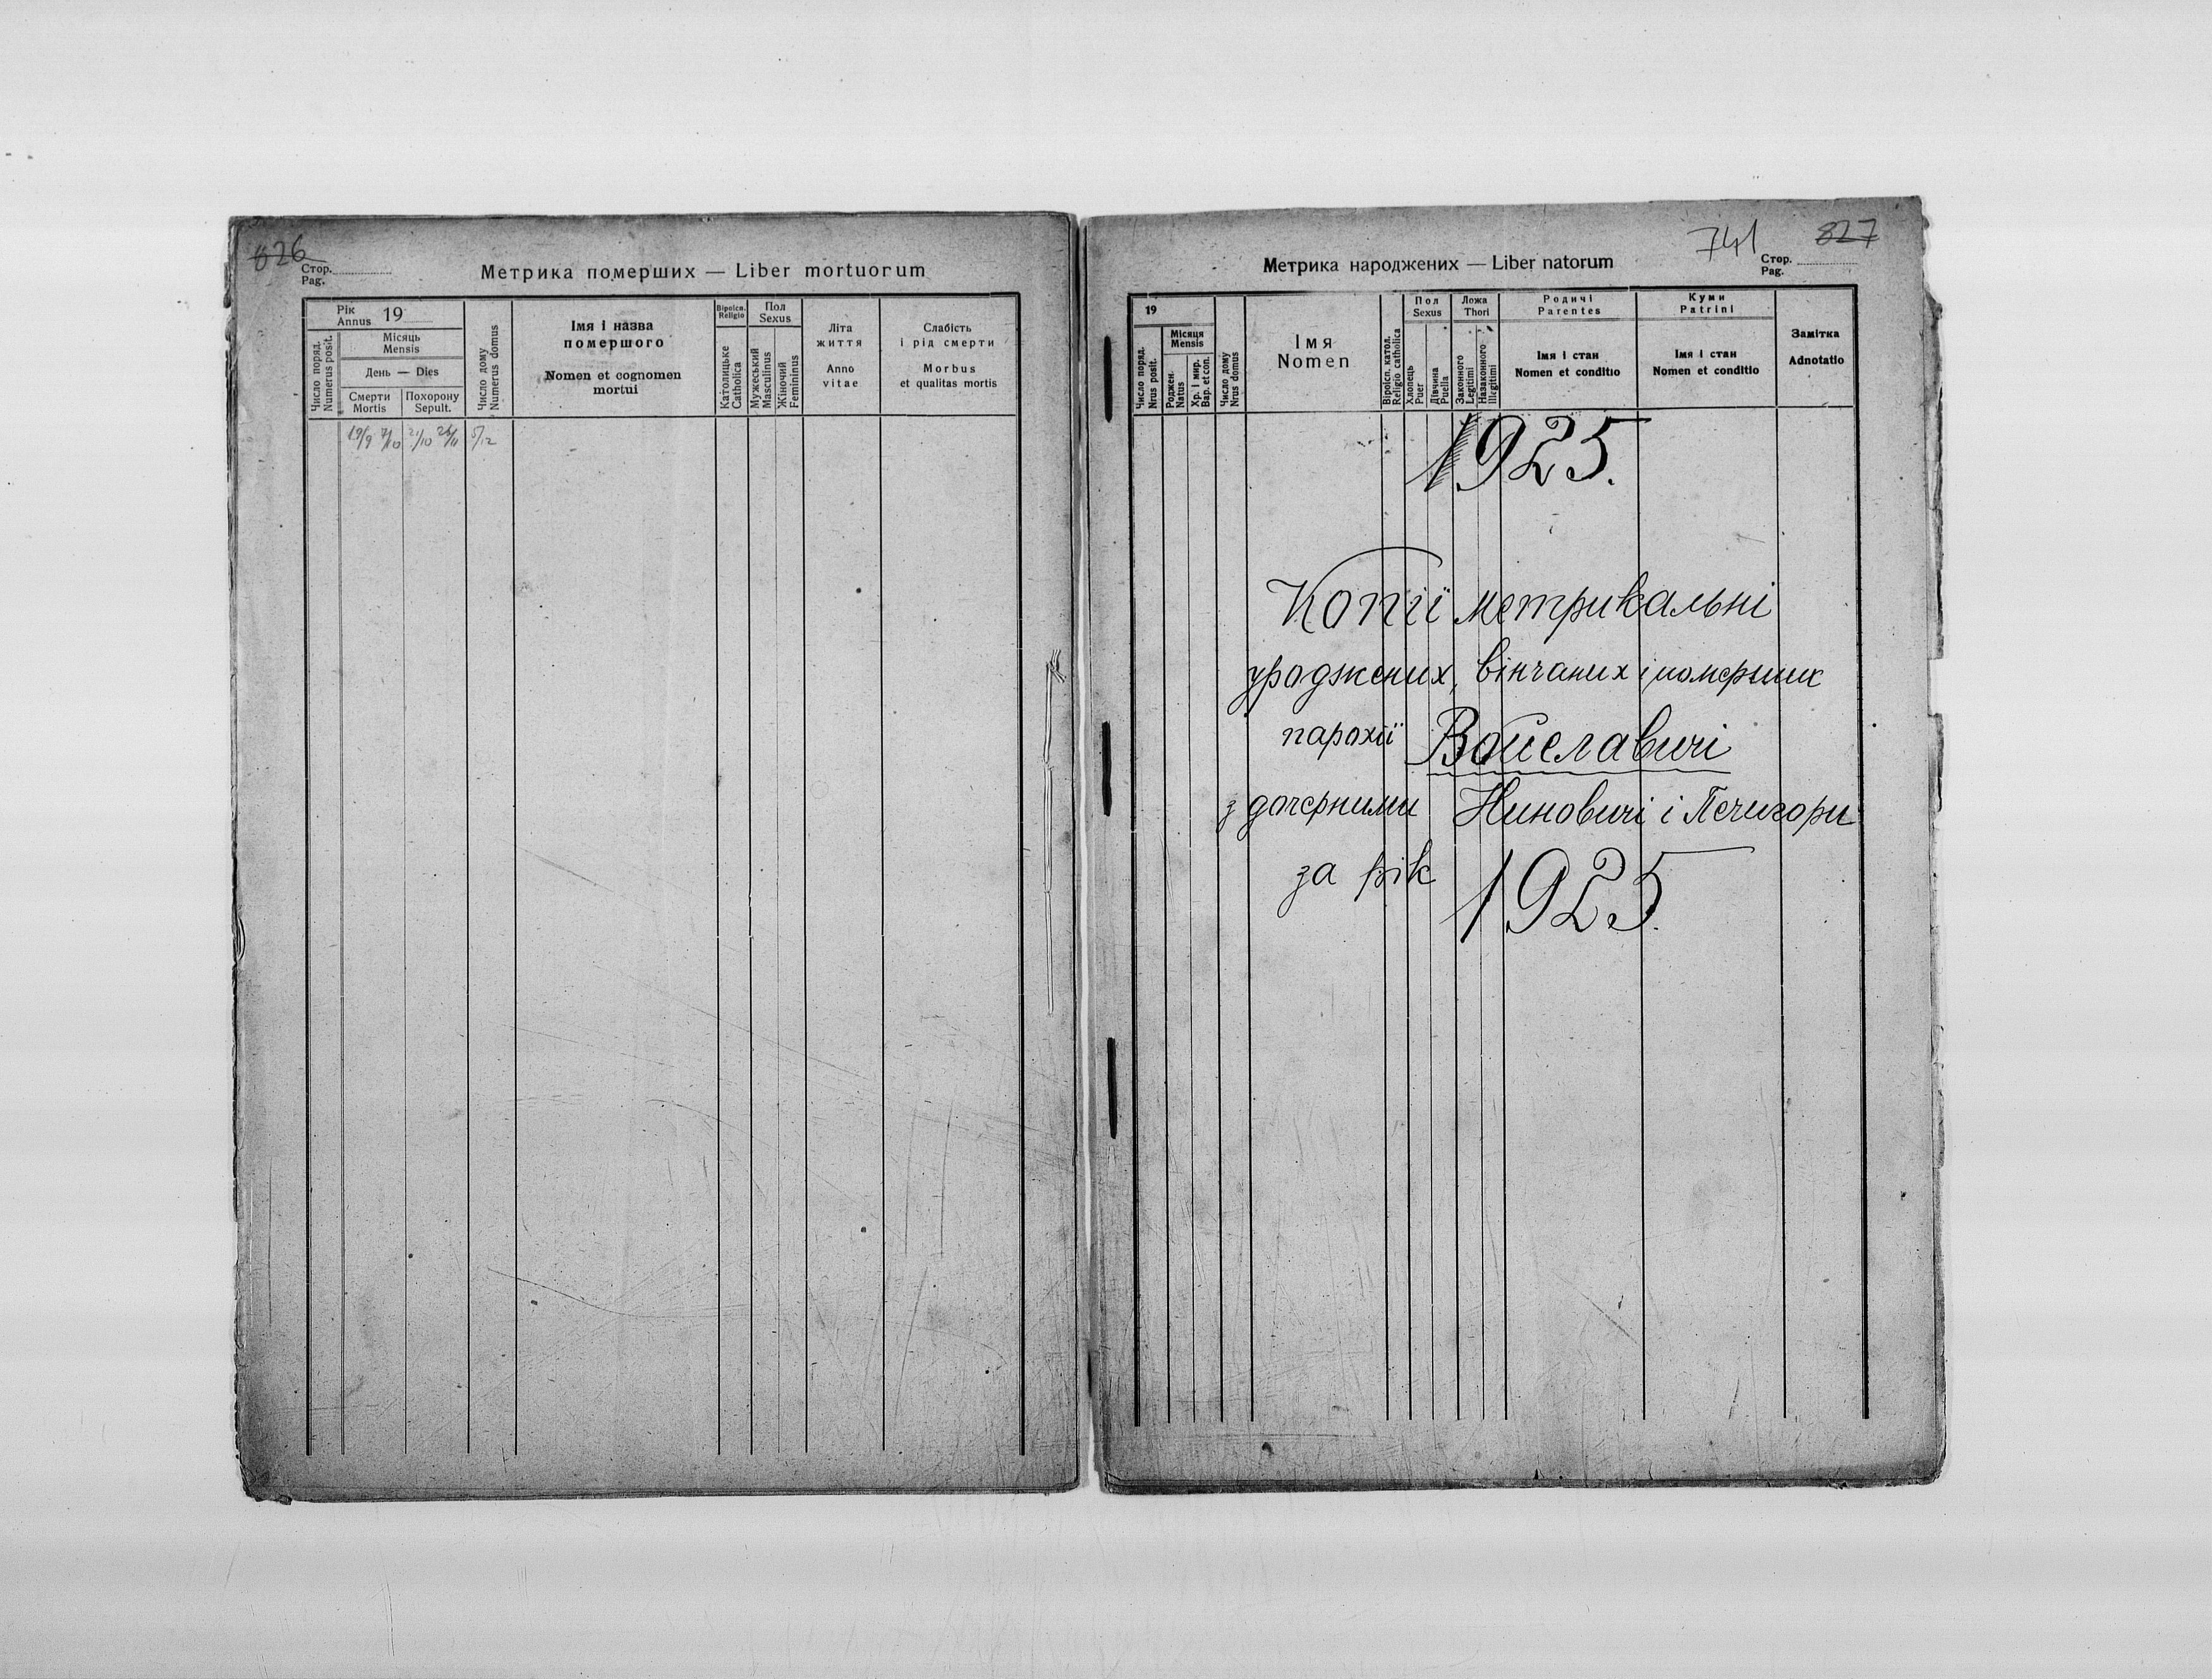 826
Стор.
Pag.
Метрика померших — Liber mortuorum
Рік
Annus 19
Число поряд.
Numerus posit.
Місяць
Mensis
День — Dies
Смерти
Mortis
Похорону
Sepult.
Число дому
Numerus domus
Імя і назва
помершого
Nomen et cognomen
mortui
Віроісп.
Religio
Католицьке
Catholica
Пол
Sexus
Мужеський
Masculinus
Жіночий
Femininus
Літа
життя
Anno
vitae
Слабість
і рід смерти
Morbus
et qualitas mortis
19/9 7/10 21/10 26/11 5/12
741
827
Стор.
Pag.
Метрика народжених — Liber natorum
19
Число поряд.
Nrus posit.
Місяця
Mensis
Роджен.
Natus
Хр. і мир.
Bap. et con.
Число дому
Nrus domus
Імя
Nomen
Віроісп. катол.
Religio catholica
Пол
Sexus
Хлопець
Puer
Дівчина
Puella
Ложа
Thori
Законного
Legitimi
Незаконного
Illegitimi
Родичі
Parentes
Імя і стан
Nomen et conditio
Куми
Patrini
Імя і стан
Nomen et conditio
Замітка
Adnotatio
1925.
Копії метрикальні
уроджених, вінчаних і померших
парохії Войславичі
з дочерними Ниновичі і Печигори
за рік 1925.